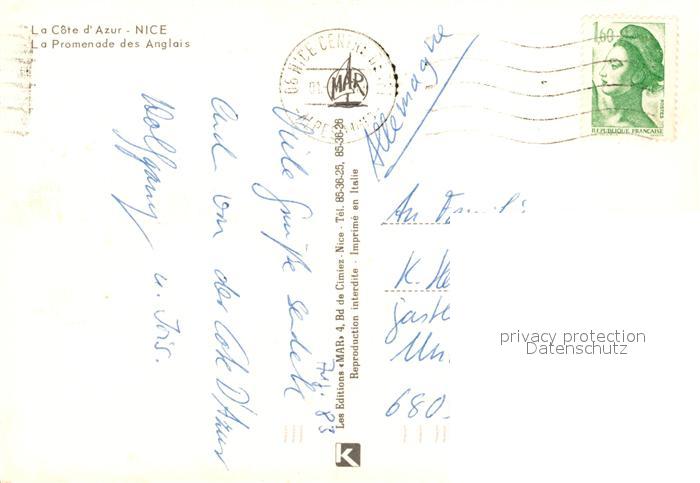 La Côte d'Azur - NICE
La Promenade des Anglais
06 NICE CENTRE
MAR
1,60
POSTES
REPUBLIQUE FRANCAISE
Allemagne
Viele Grüße sendet
Euch von der Cote D'Azur
Wolfgang u. Iris.
83
Les Editions «MAR» 4, Bd de Cimiez - Nice - Tél. 85-36-25, 85-36-26
Reproduction interdite - Imprimé en Italie
An
K.
680
privacy protection
Datenschutz
K